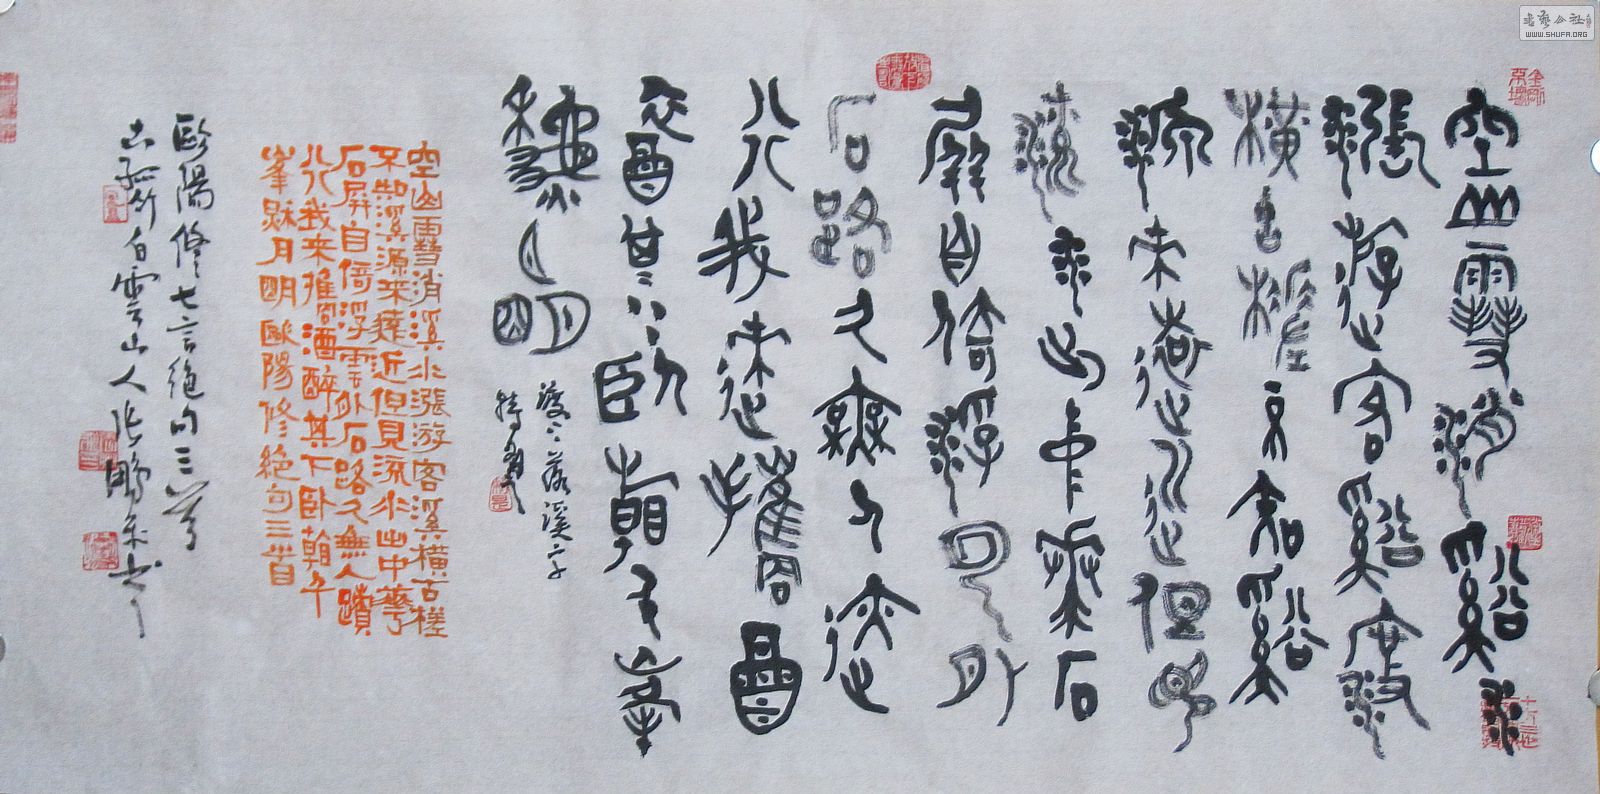 空山雪消溪水
漲游客溪渡
橫古槎不知溪
源來遠近但見
流水山中華石
屏自倚浮雲外
石路久無人迹
行我來攜酒
醉其下臥看千峯
秋月明
渡下落溪字
空山雪消溪水漲游客溪橫古槎
不知溪源來遠近但見流水出中華
石屏自倚浮雲外石路久無人蹟
行我來攜酒醉其下臥看千
峯秋月明歐陽修絕句三首
歐陽修七言絕句三首
白雲山人張鵬
WWW.SHUFA.ORG